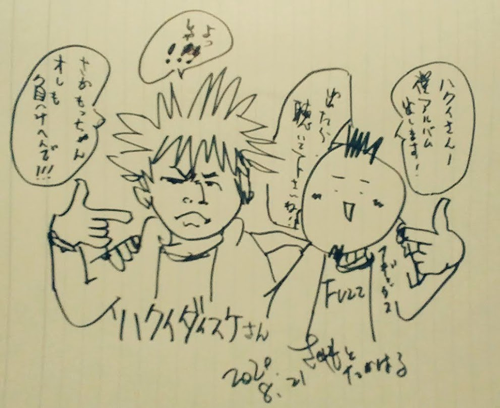 ハクイさんー
僕アルバム
出します!
出たら
聴いて下さいね!!
よっ
しゃ
!!!
さかもっちゃん
オレも
負けへんで!!!
ハクイダイスケさん
FUZZ
さかもと
たかはる
2020
8.21